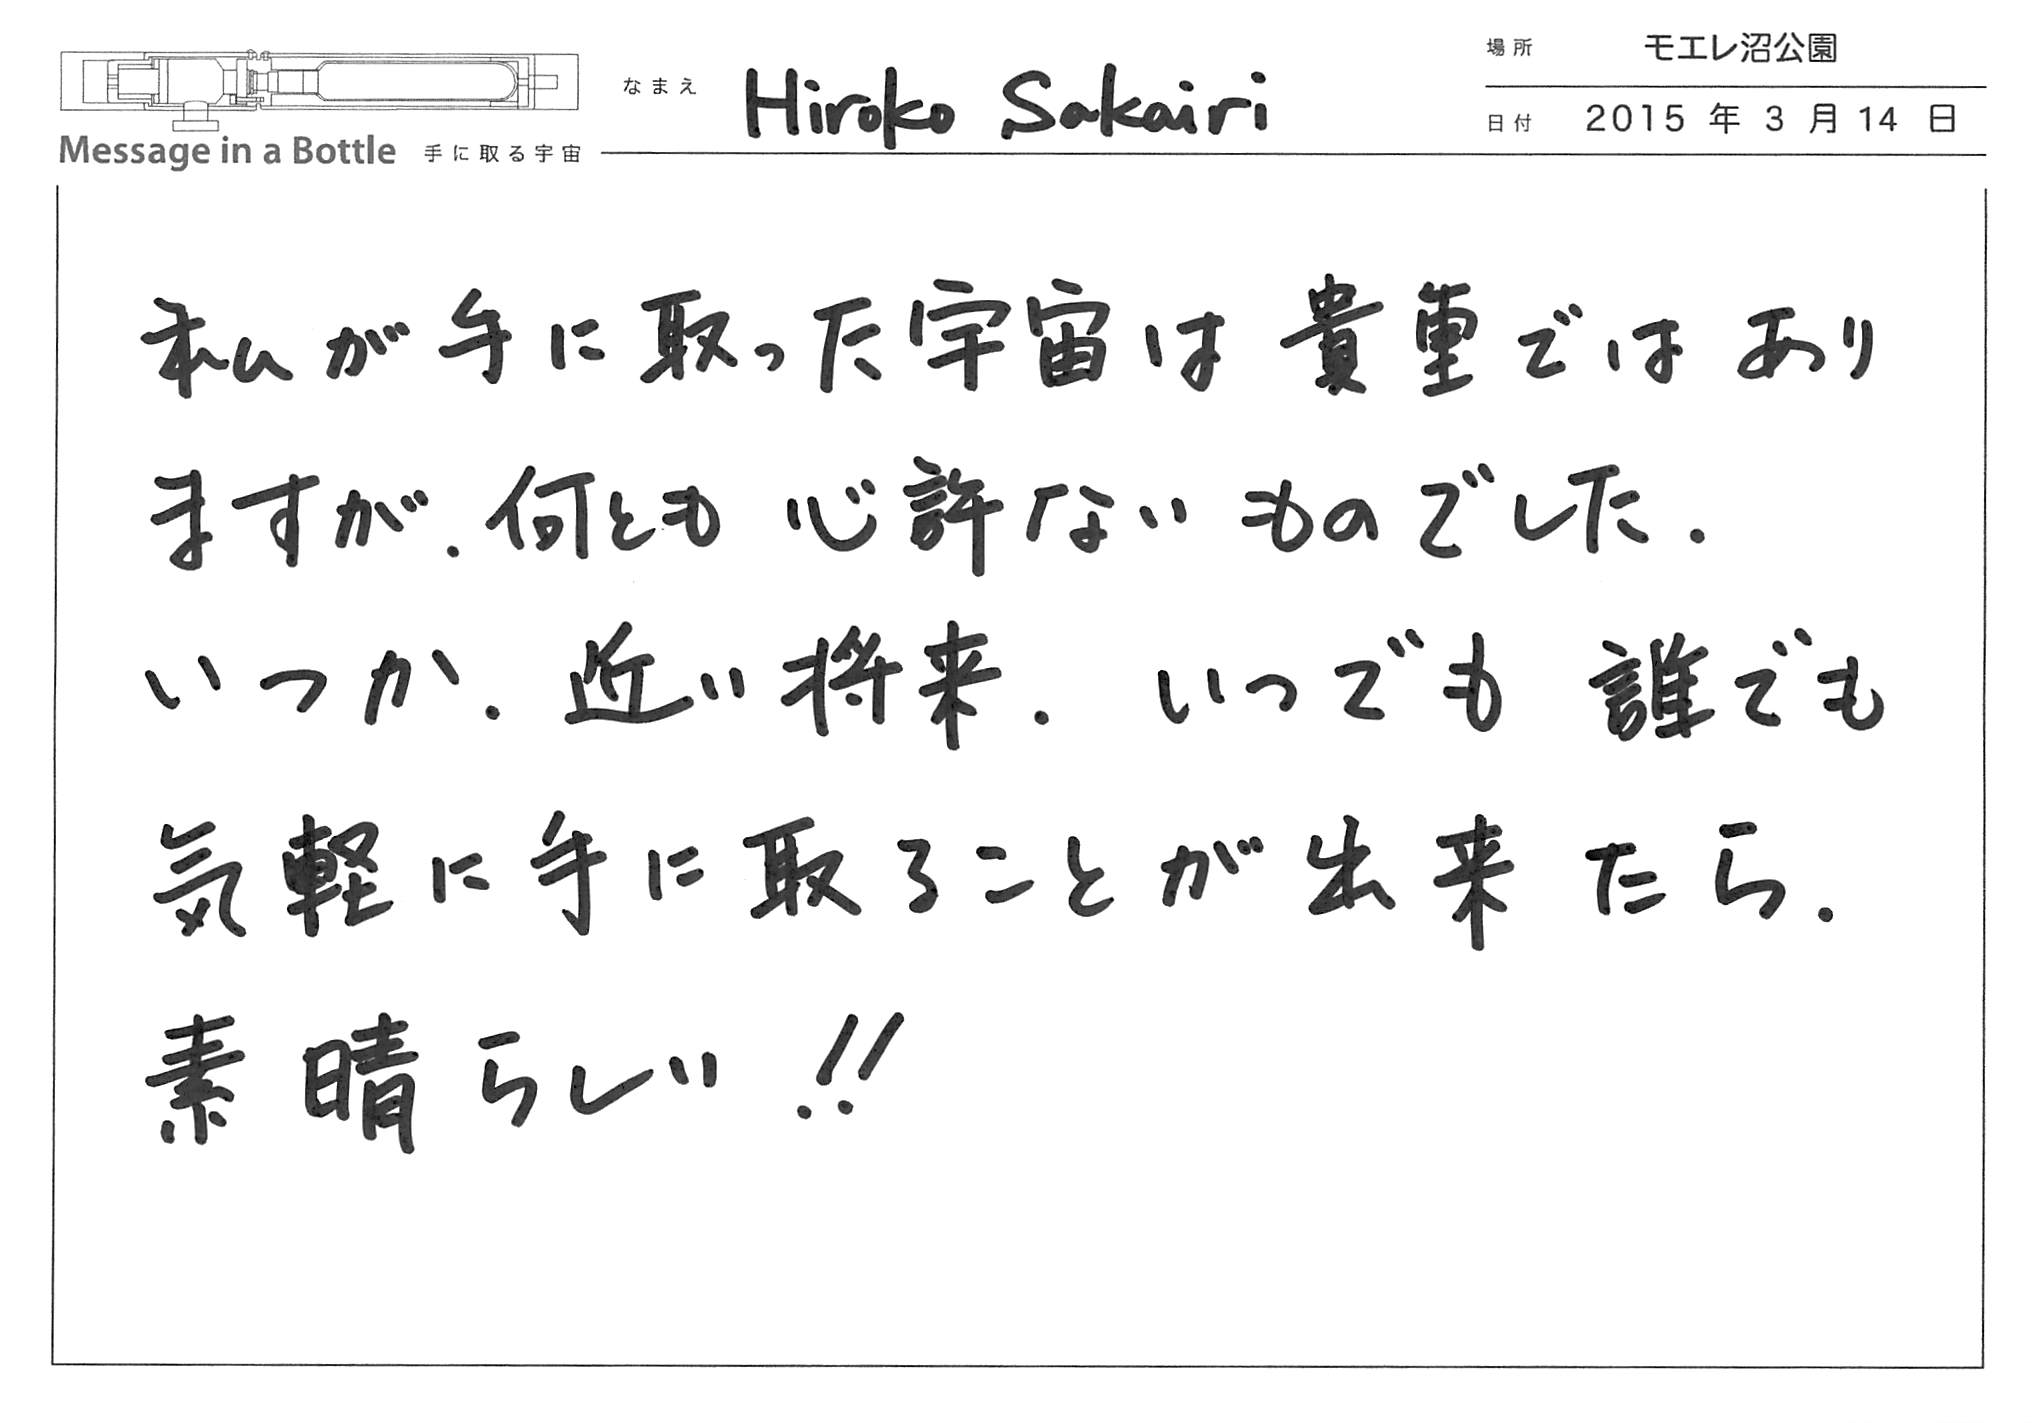 Message in a Bottle 手に取る宇宙
なまえ Hiroko Sakairi
場所 モエレ沼公園
日付 2015 年 3 月 14 日
私が手に取った宇宙は貴重ではあり
ますが.何とも心許ないものでした.
いつか.近い将来.いつでも誰でも
気軽に手に取ることが出来たら.
素晴らしい!!